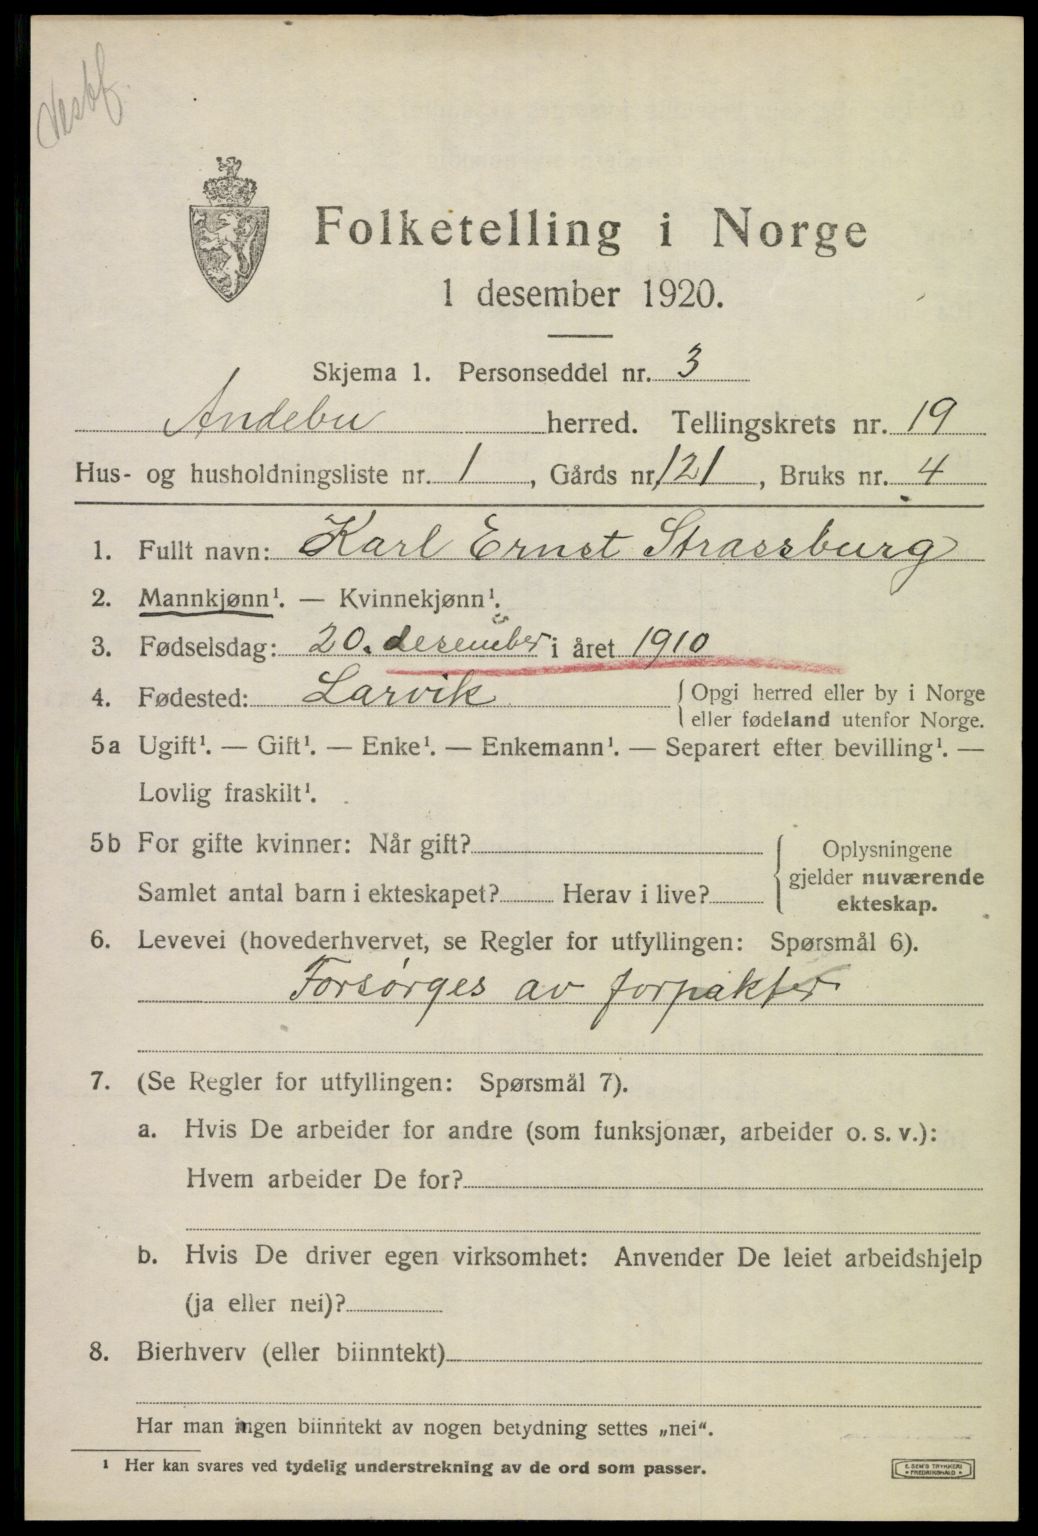 Vesbf.
Folketelling i Norge
1 desember 1920.
Skjema 1. Personseddel nr. 3
Andebu herred. Tellingskrets nr. 19
Hus- og husholdningsliste nr. 1, Gårds nr. 121, Bruks nr. 4
1. Fullt navn: Karl Ernst Strassburg
2. Mannkjønn¹. — Kvinnekjønn¹.
3. Fødselsdag: 20. desember i året 1910
4. Fødested: Larvik {Opgi herred eller by i Norge
eller fødeland utenfor Norge.
5a Ugift¹. — Gift¹. — Enke¹. — Enkemann¹. — Separert efter bevilling¹. —
Lovlig fraskilt¹.
5b For gifte kvinner: Når gift? { Oplysningene
gjelder nuværende
Samlet antal barn i ekteskapet? Herav i live? ekteskap.
6. Levevei (hovederhvervet, se Regler for utfyllingen: Spørsmål 6).
Forsørges av forpakter
7. (Se Regler for utfyllingen: Spørsmål 7).
a. Hvis De arbeider for andre (som funksjonær, arbeider o. s. v.):
Hvem arbeider De for?
b. Hvis De driver egen virksomhet: Anvender De leiet arbeidshjelp
(ja eller nei)?
8. Bierhverv (eller biinntekt)
Har man ingen biinntekt av nogen betydning settes „nei“.
¹ Her kan svares ved tydelig understrekning av de ord som passer.
E. SEM'S TRYKKERI
FREDRIKSHALD